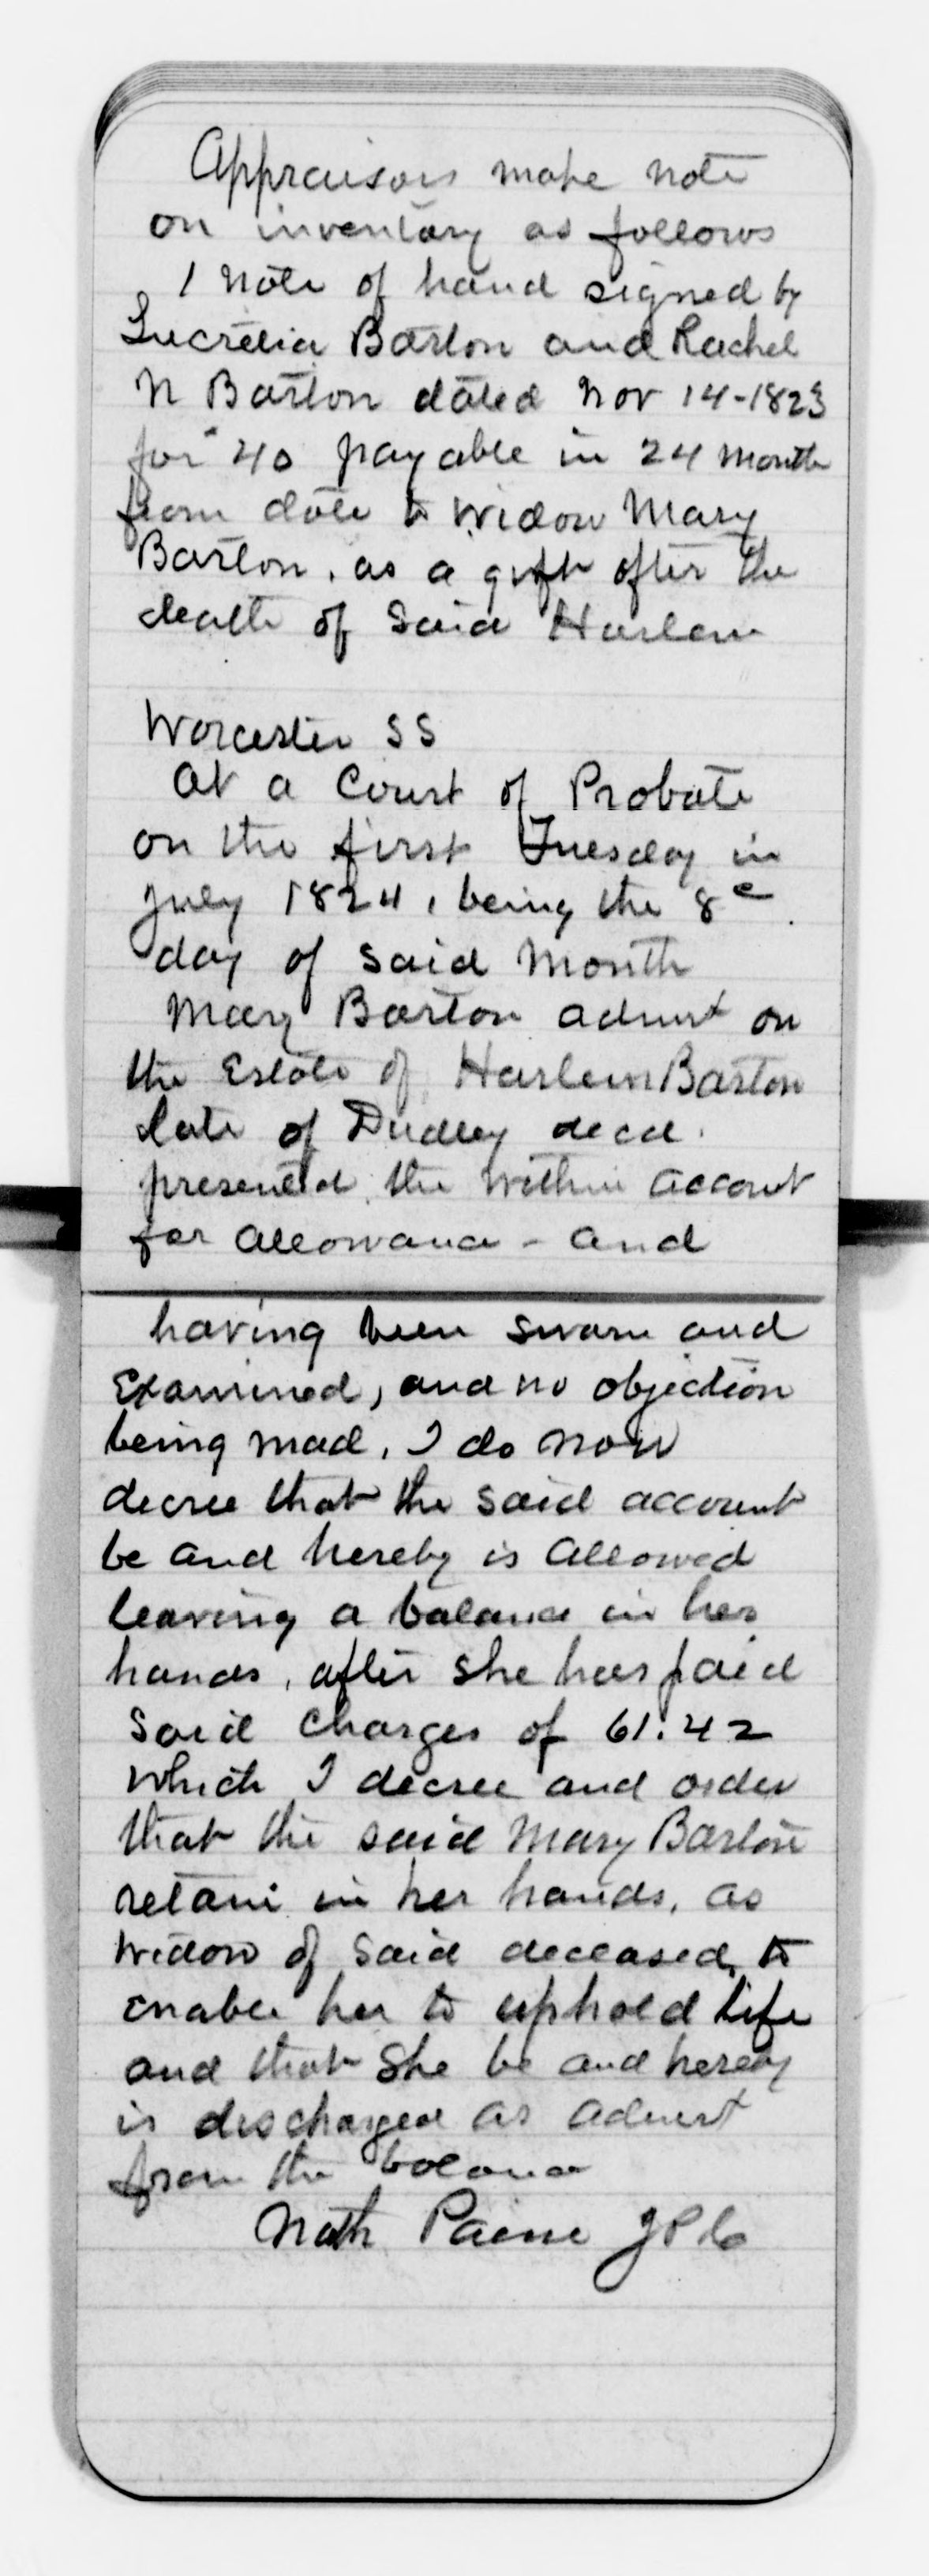 Appraisors make note
on inventory as follows
1 note of hand signed by
Lucretia Barton and Rachel
N Barton dated Nov 14-1823
for 40 payable in 24 month
from date to Widow Mary
Barton, as a gift after the
death of said Harlem
Worcester SS
At a Court of Probate
on the first Tuesday in
July 1824, being the 8
day of said Month
Mary Barton admt on
the Estate of Harlem Barton
late of Dudley decd.
presented the within account
for allowance - and
having been sworn and
Examined, and no objection
being mad, I do now
decree that the said account
be and hereby is allowed
leaving a balance in her
hands, after she has paid
said charges of 61.42
which I decree and order
that the said Mary Barton
retain in her hands, as
widow of said deceased, to
enable her to uphold life
and that she be and hereby
is discharged as admt
from the balance
Nath Paine J P